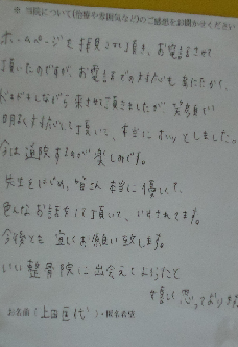 ※ 当院について(治療や雰囲気など)のご感想をお聞かせください
ホームページを拝見させて頂き、お電話させて
頂いたのですが、お電話での対応もあたたかく、
ドキドキしながら来させて頂きましたが、笑顔で
明るく対応して頂いて、本当にホッとしました。
今は通院するのが楽しみです。
先生をはじめ、皆さん本当に優しくて、
色んなお話をして頂いて、いやされてます。
今後とも宜しくお願い致します。
いい整骨院に出会えてよかったと
嬉しく思っております
お名前(上田 )・匿名希望